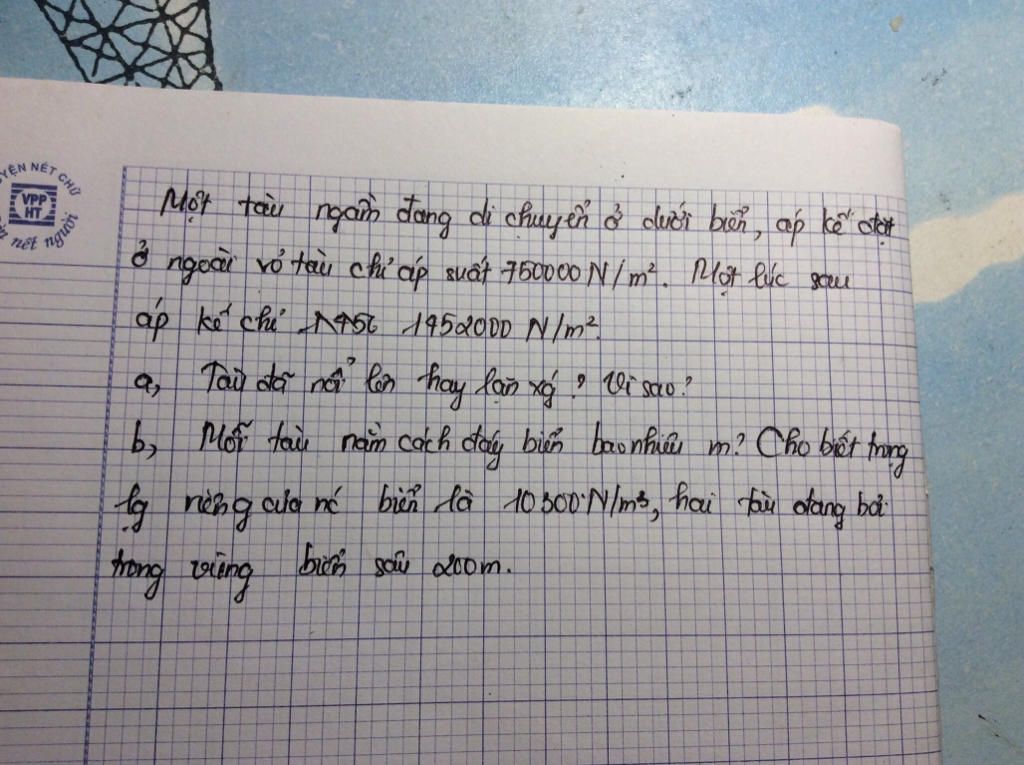 YỆN NÉT CHỮ
VPP
HT
n nết người
Một tàu ngầm đang di chuyển ở dưới biển, áp kế đặt
ở ngoài vỏ tàu chỉ áp suất 750000 N/m². Một lúc sau
áp kế chỉ 1452000 N/m².
a, Tàu đã nổi lên hay lặn xg? Vì sao?
b, Mỗi tàu nằm cách đáy biển bao nhiêu m? Cho biết trọng
lg riêng của nc biển là 10300 N/m³, hai tàu đang bơi
trong vùng biển sâu 200m.